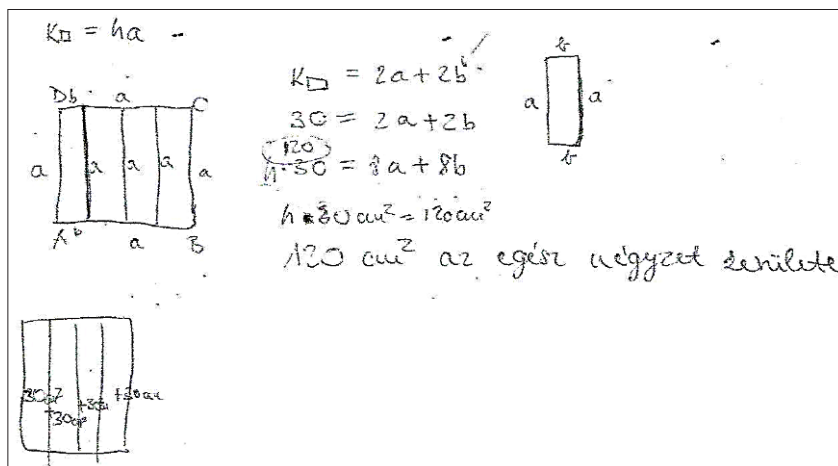 K□ = 4a
D b a C
a a a a a
A b a B
K▭ = 2a + 2b
30 = 2a + 2b
120
4·30 = 8a + 8b
4·30 cm² = 120 cm²
120 cm² az egész négyzet területe
b
a a
b
30cm²
+30cm²
+30
+30cm